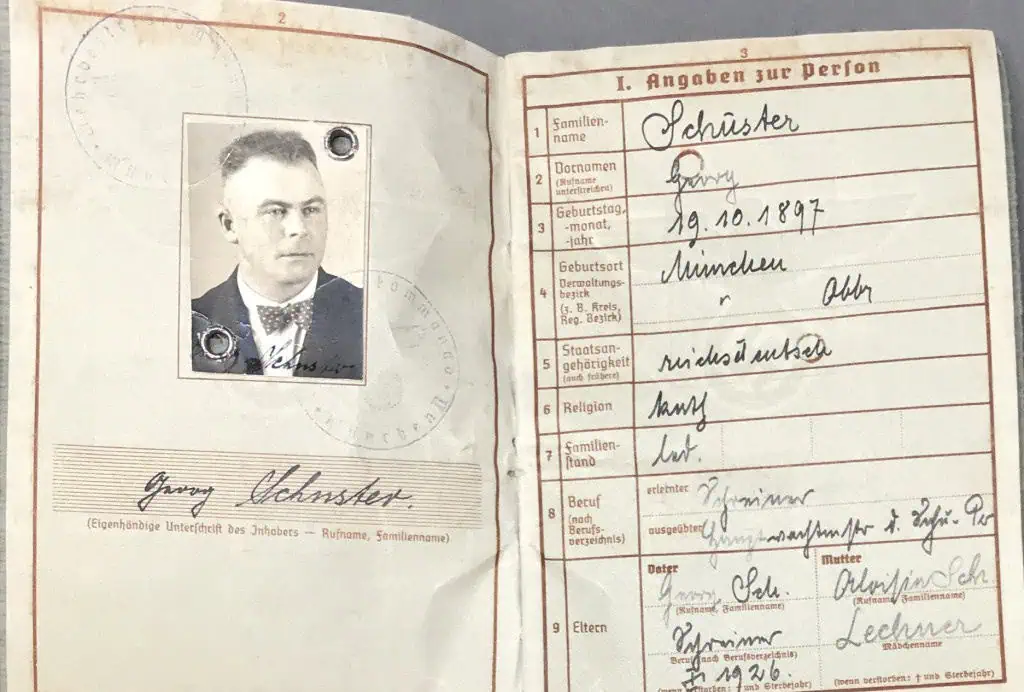 2
Schuster
Georg Schuster.
(Eigenhändige Unterschrift des Inhabers — Rufname, Familienname)
3
I. Angaben zur Person
1 Familien-
name
Schuster
2 Vornamen
(Rufname
unterstreichen)
Georg
3 Geburtstag,
-monat,
-jahr
19.10.1897
4 Geburtsort
Verwaltungs-
bezirk
(z. B. Kreis,
Reg. Bezirk)
München
" Obb
5 Staatsan-
gehörigkeit
(auch frühere)
reichsdeutsch
6 Religion
kath
7 Familien-
stand
led.
8 Beruf
(nach
Berufs-
verzeichnis)
erlernter Schreiner
ausgeübter Hauptwachtmstr d. Schu-Po
9 Eltern
Vater
Georg Sch.
(Rufname, Familienname)
Schreiner
Beruf (nach Berufsverzeichnis)
† 1926.
(wenn verstorben: † und Sterbejahr)
Mutter
Aloisia Sch.
(Rufname, Familienname)
Lechner
Mädchenname
(wenn verstorben: † und Sterbejahr)